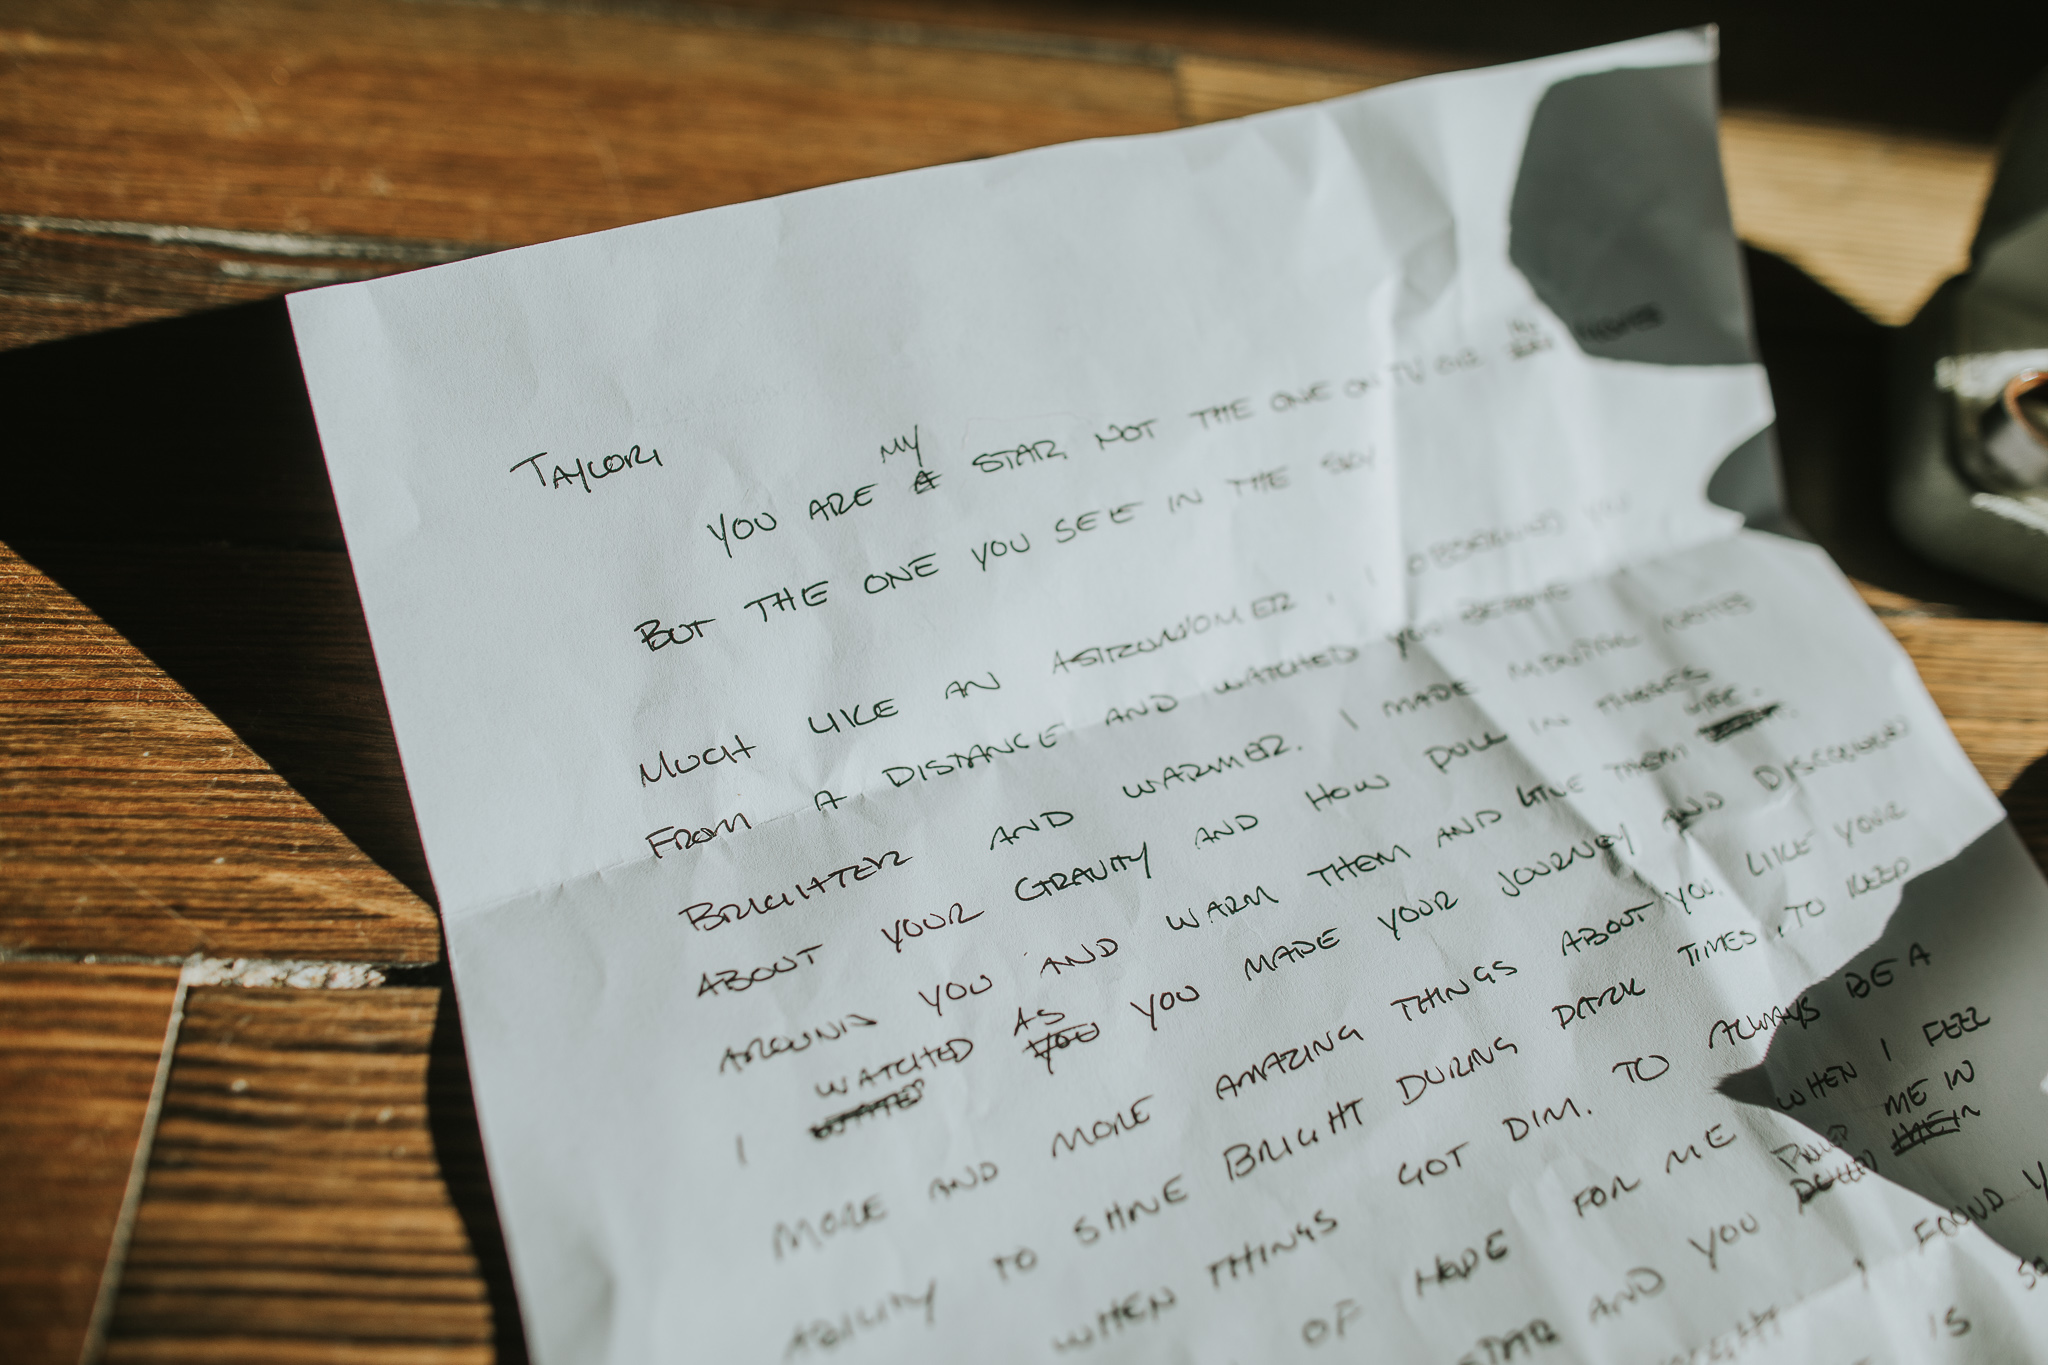 Taylor,
MY
YOU ARE A STAR, NOT THE ONE ON TV OR
BUT THE ONE YOU SEE IN THE SKY
MUCH LIKE AN ASTRONOMER, I OBSERVED YOU
FROM A DISTANCE AND WATCHED YOU BECOME
BRIGHTER AND WARMER. I MADE MENTAL NOTES
ABOUT YOUR GRAVITY AND HOW PULL IN THINGS
AROUND YOU AND WARM THEM AND GIVE THEM LIFE.
I WATCHED AS YOU YOU MADE YOUR JOURNEY AND DISCOVERED
MORE AND MORE AMAZING THINGS ABOUT YOU. LIKE YOUR
ABILITY TO SHINE BRIGHT DURING DARK TIMES, TO KEEP
WHEN THINGS GOT DIM. TO ALWAYS BE A
OF HOPE FOR ME WHEN I FEEL
STAR AND YOU PULLED ME IN
I FOUND
IS